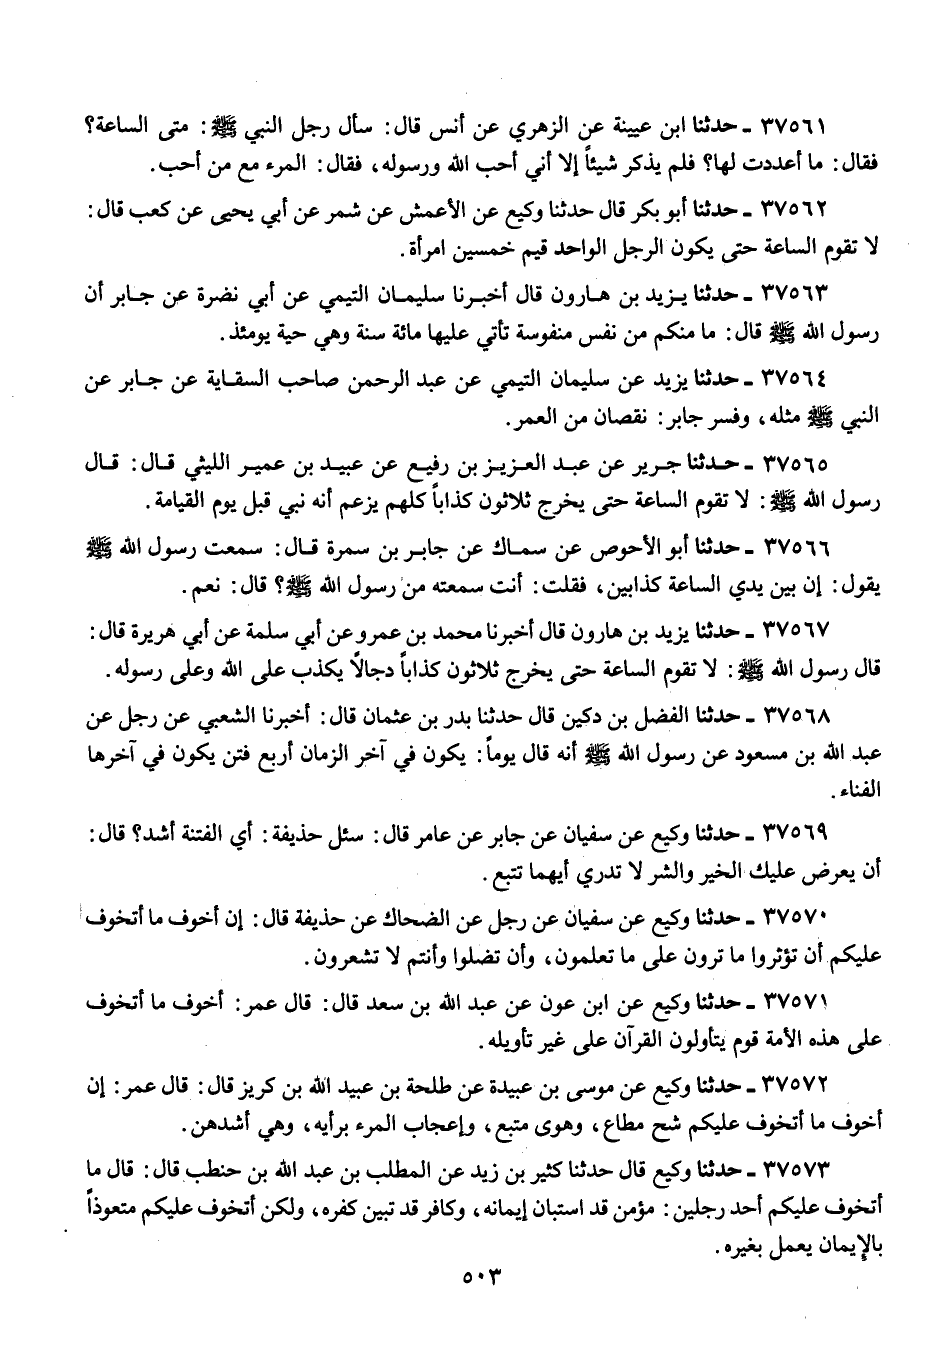 ٣٧٥٦١ ـ حدثنا ابن عيينة عن الزهري عن أنس قال: سأل رجل النبي ﷺ: متى الساعة؟
فقال: ما أعددت لها؟ فلم يذكر شيئاً إلا أني أحب الله ورسوله، فقال: المرء مع من أحب.
٣٧٥٦٢ ـ حدثنا أبو بكر قال حدثنا وكيع عن الأعمش عن شمر عن أبي يحيى عن كعب قال:
لا تقوم الساعة حتى يكون الرجل الواحد قيم خمسين امرأة.
٣٧٥٦٣ ـ حدثنا يزيد بن هارون قال أخبرنا سليمان التيمي عن أبي نضرة عن جابر أن
رسول الله ﷺ قال: ما منكم من نفس منفوسة تأتي عليها مائة سنة وهي حية يومئذ.
٣٧٥٦٤ ـ حدثنا يزيد عن سليمان التيمي عن عبد الرحمن صاحب السقاية عن جابر عن
النبي ﷺ مثله، وفسر جابر: نقصان من العمر.
٣٧٥٦٥ ـ حدثنا جرير عن عبد العزيز بن رفيع عن عبيد بن عمير الليثي قال: قال
رسول الله ﷺ: لا تقوم الساعة حتى يخرج ثلاثون كذاباً كلهم يزعم أنه نبي قبل يوم القيامة.
٣٧٥٦٦ ـ حدثنا أبو الأحوص عن سماك عن جابر بن سمرة قال: سمعت رسول الله ﷺ
يقول: إن بين يدي الساعة كذابين، فقلت: أنت سمعته من رسول الله ﷺ؟ قال: نعم.
٣٧٥٦٧ ـ حدثنا يزيد بن هارون قال أخبرنا محمد بن عمرو عن أبي سلمة عن أبي هريرة قال:
قال رسول الله ﷺ: لا تقوم الساعة حتى يخرج ثلاثون كذاباً دجالاً يكذب على الله وعلى رسوله.
٣٧٥٦٨ ـ حدثنا الفضل بن دكين قال حدثنا بدر بن عثمان قال: أخبرنا الشعبي عن رجل عن
عبد الله بن مسعود عن رسول الله ﷺ أنه قال يوماً: يكون في آخر الزمان أربع فتن يكون في آخرها
الفناء.
٣٧٥٦٩ ـ حدثنا وكيع عن سفيان عن جابر عن عامر قال: سئل حذيفة: أي الفتنة أشد؟ قال:
أن يعرض عليك الخير والشر لا تدري أيهما تتبع.
٣٧٥٧٠ ـ حدثنا وكيع عن سفيان عن رجل عن الضحاك عن حذيفة قال: إن أخوف ما أتخوف
عليكم أن تؤثروا ما ترون على ما تعلمون، وأن تضلوا وأنتم لا تشعرون.
٣٧٥٧١ ـ حدثنا وكيع عن ابن عون عن عبد الله بن سعد قال: قال عمر: أخوف ما أتخوف
على هذه الأمة قوم يتأولون القرآن على غير تأويله.
٣٧٥٧٢ ـ حدثنا وكيع عن موسى بن عبيدة عن طلحة بن عبيد الله بن كريز قال: قال عمر: إن
أخوف ما أتخوف عليكم شح مطاع، وهوى متبع، وإعجاب المرء برأيه، وهي أشدهن.
٣٧٥٧٣ ـ حدثنا وكيع قال حدثنا كثير بن زيد عن المطلب بن عبد الله بن حنطب قال: قال ما
أتخوف عليكم أحد رجلين: مؤمن قد استبان إيمانه، وكافر قد تبين كفره، ولكن أتخوف عليكم متعوذاً
بالإيمان يعمل بغيره.
٥٠٣